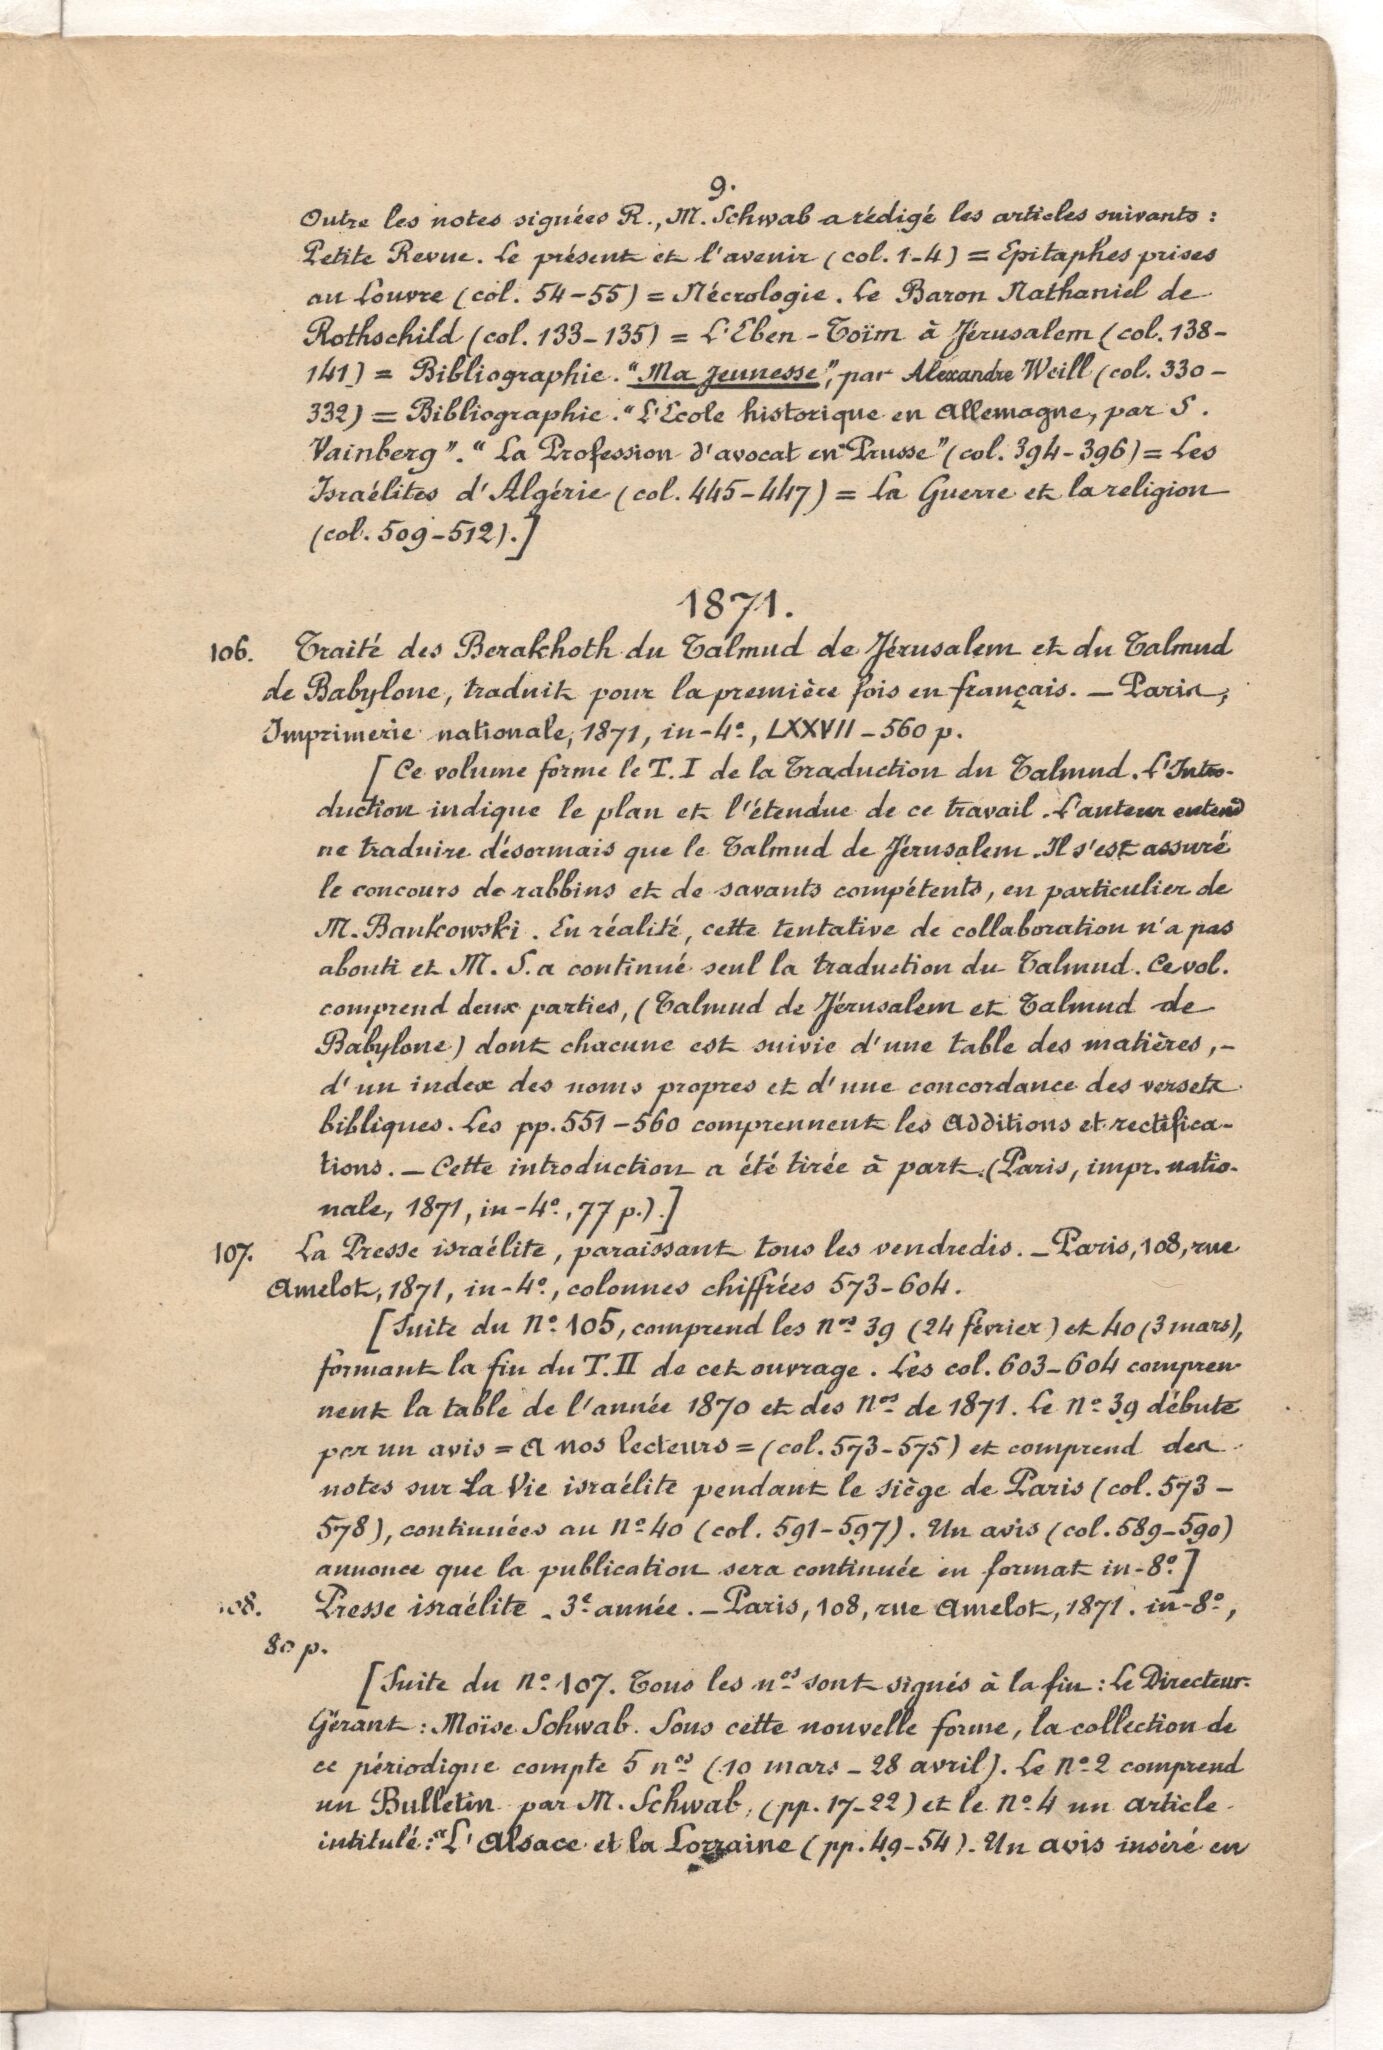 9.
Outre les notes signées R., M. Schwab a rédigé les articles suivants :
Petite Revue. Le présent et l'avenir (col. 1-4) = Epitaphes prises
au Louvre (col. 54-55) = Nécrologie. Le Baron Nathaniel de
Rothschild (col. 133-135) = L'Eben-Toïm à Jérusalem (col. 138-
141) = Bibliographie. "Ma Jeunesse", par Alexandre Weill (col. 330-
332) = Bibliographie. "L'Ecole historique en Allemagne, par S.
Vainberg". "La Profession d'avocat en Prusse" (col. 394-396) = Les
Israélites d'Algérie (col. 445-447) = La Guerre et la religion
(col. 509-512).]
1871.
106. Traité des Berakhoth du Talmud de Jérusalem et du Talmud
de Babylone, traduit pour la première fois en français. — Paris,
Imprimerie nationale, 1871, in-4º, LXXVII-560 p.
[Ce volume forme le T. I de la Traduction du Talmud. L'Intro-
duction indique le plan et l'étendue de ce travail. L'auteur entend
ne traduire désormais que le Talmud de Jérusalem. Il s'est assuré
le concours de rabbins et de savants compétents, en particulier de
M. Bankowski. En réalité, cette tentative de collaboration n'a pas
abouti et M. S. a continué seul la traduction du Talmud. Ce vol.
comprend deux parties, (Talmud de Jérusalem et Talmud de
Babylone) dont chacune est suivie d'une table des matières, -
d'un index des noms propres et d'une concordance des versets
bibliques. Les pp. 551-560 comprennent les Additions et rectifica-
tions. — Cette introduction a été tirée à part. (Paris, impr. natio-
nale, 1871, in-4º, 77 p.).]
107. La Presse israélite, paraissant tous les vendredis. — Paris, 108, rue
Amelot, 1871, in-4º, colonnes chiffrées 573-604.
[Suite du Nº 105, comprend les nºs 39 (24 février) et 40 (3 mars),
formant la fin du T. II de cet ouvrage. Les col. 603-604 compren-
nent la table de l'année 1870 et des Nos de 1871. Le Nº 39 débute
par un avis = A nos lecteurs = (col. 573-575) et comprend des
notes sur La Vie israélite pendant le siège de Paris (col. 573-
578), continuées au Nº 40 (col. 591-597). Un avis (col. 589-590)
annonce que la publication sera continuée en format in-8º]
108. Presse israélite - 3e année. — Paris, 108, rue Amelot, 1871. in-8º,
80 p.
[Suite du Nº 107. Tous les nos sont signés à la fin : Le Directeur-
Gérant : Moïse Schwab. Sous cette nouvelle forme, la collection de
ce périodique compte 5 nos (10 mars - 28 avril). Le Nº 2 comprend
un Bulletin par M. Schwab, (pp. 17-22) et le Nº 4 un article
intitulé : "L'Alsace et la Lorraine (pp. 49-54). Un avis inséré en